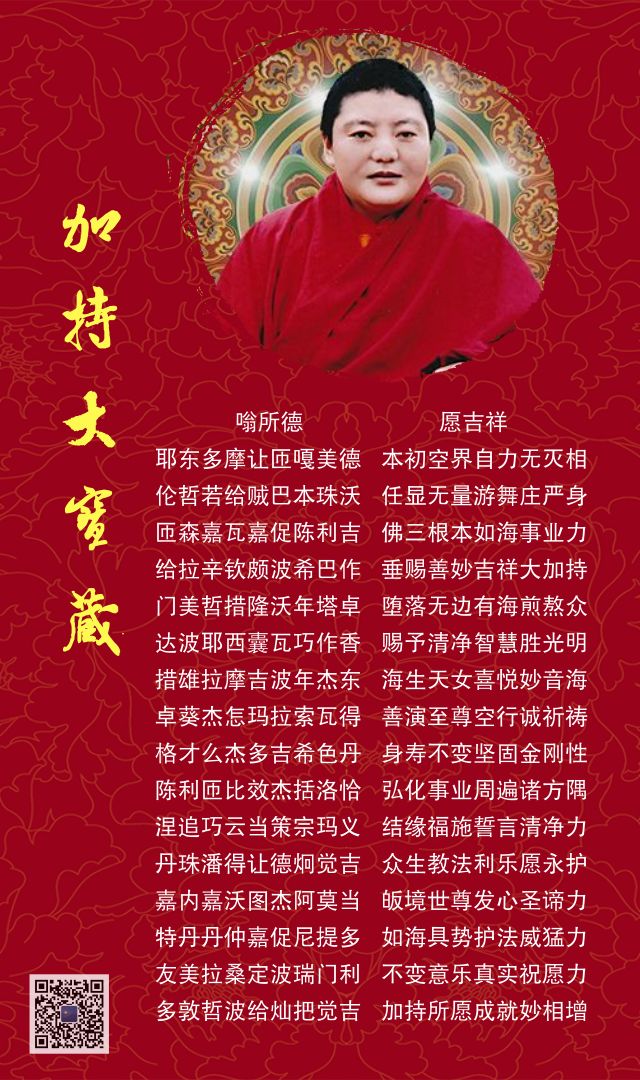 加持大宝藏
嗡所德 愿吉祥
耶东多摩让匝嘎美德 本初空界自力无灭相
伦哲若给贼巴本珠沃 任显无量游舞庄严身
匝森嘉瓦嘉促陈利吉 佛三根本如海事业力
给拉辛钦颇波希巴作 垂赐善妙吉祥大加持
门美哲措隆沃年塔卓 堕落无边有海煎熬众
达波耶西囊瓦巧作香 赐予清净智慧胜光明
措雄拉摩吉波年杰东 海生天女喜悦妙音海
卓葵杰怎玛拉索瓦得 善演至尊空行诚祈祷
格才么杰多吉希色丹 身寿不变坚固金刚性
陈利匝比效杰括洛恰 弘化事业周遍诸方隅
涅追巧云当策宗玛义 结缘福施誓言清净力
丹珠潘得让德炯觉吉 众生教法利乐愿永护
嘉内嘉沃图杰阿莫当 皈境世尊发心圣谛力
特丹丹仲嘉促尼提多 如海具势护法威猛力
友美拉桑定波瑞门利 不变意乐真实祝愿力
多敦哲波给灿把觉吉 加持所愿成就妙相增